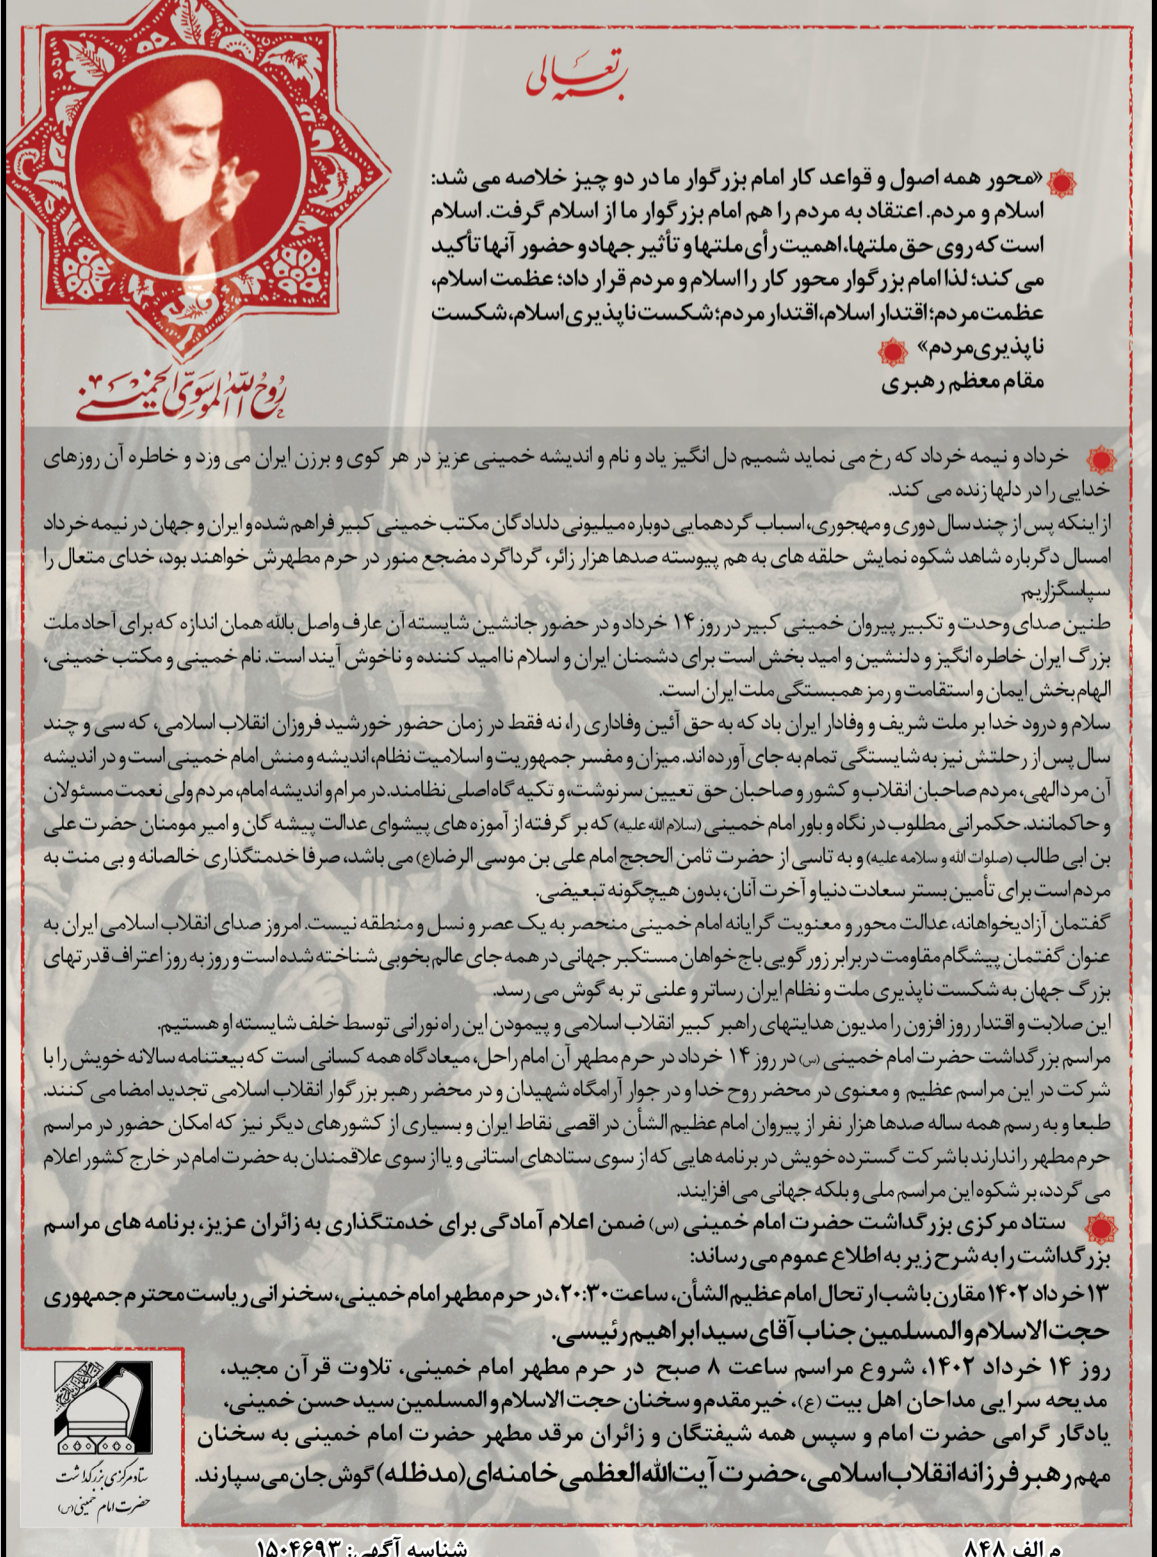 بسمه تعالی
«محور همه اصول و قواعد کار امام بزرگوار ما در دو چیز خلاصه می شد:
اسلام و مردم. اعتقاد به مردم را هم امام بزرگوار ما از اسلام گرفت. اسلام
است که روی حق ملتها، اهمیت رأی ملتها و تأثیر جهاد و حضور آنها تأکید
می کند؛ لذا امام بزرگوار محور کار را اسلام و مردم قرار داد؛ عظمت اسلام،
عظمت مردم؛ اقتدار اسلام، اقتدار مردم؛ شکست ناپذیری اسلام، شکست
ناپذیری مردم»
مقام معظم رهبری
روح الله الموسوی الخمینی
خرداد و نیمه خرداد که رخ می نماید شمیم دل انگیز یاد و نام و اندیشه خمینی عزیز در هر کوی و برزن ایران می وزد و خاطره آن روزهای
خدایی را در دلها زنده می کند.
از اینکه پس از چند سال دوری و مهجوری، اسباب گردهمایی دوباره میلیونی دلدادگان مکتب خمینی کبیر فراهم شده و ایران و جهان در نیمه خرداد
امسال دگرباره شاهد شکوه نمایش حلقه های به هم پیوسته صدها هزار زائر، گرداگرد مضجع منور در حرم مطهرش خواهند بود، خدای متعال را
سپاسگزاریم.
طنین صدای وحدت و تکبیر پیروان خمینی کبیر در روز ۱۴ خرداد و در حضور جانشین شایسته آن عارف واصل بالله همان اندازه که برای آحاد ملت
بزرگ ایران خاطره انگیز و دلنشین و امید بخش است برای دشمنان ایران و اسلام ناامید کننده و ناخوش آیند است. نام خمینی و مکتب خمینی،
الهام بخش ایمان و استقامت و رمز همبستگی ملت ایران است.
سلام و درود خدا بر ملت شریف و وفادار ایران باد که به حق آئین وفاداری را، نه فقط در زمان حضور خورشید فروزان انقلاب اسلامی، که سی و چند
سال پس از رحلتش نیز به شایستگی تمام به جای آورده اند. میزان و مفسر جمهوریت و اسلامیت نظام، اندیشه و منش امام خمینی است و در اندیشه
آن مرد الهی، مردم صاحبان انقلاب و کشور و صاحبان حق تعیین سرنوشت، و تکیه گاه اصلی نظامند. در مرام و اندیشه امام، مردم ولی نعمت مسئولان
و حاکمانند. حکمرانی مطلوب در نگاه و باور امام خمینی (سلام الله علیه) که بر گرفته از آموزه های پیشوای عدالت پیشه گان و امیر مومنان حضرت علی
بن ابی طالب (صلوات الله و سلامه علیه) و به تاسی از حضرت ثامن الحجج امام علی بن موسی الرضا(ع) می باشد، صرفا خدمتگذاری خالصانه و بی منت به
مردم است برای تأمین بستر سعادت دنیا و آخرت آنان، بدون هیچگونه تبعیضی.
گفتمان آزادیخواهانه، عدالت محور و معنویت گرایانه امام خمینی منحصر به یک عصر و نسل و منطقه نیست. امروز صدای انقلاب اسلامی ایران به
عنوان گفتمان پیشگام مقاومت در برابر زورگویی باج خواهان مستکبر جهانی در همه جای عالم بخوبی شناخته شده است و روز به روز اعتراف قدرتهای
بزرگ جهان به شکست ناپذیری ملت و نظام ایران رساتر و علنی تر به گوش می رسد.
این صلابت و اقتدار روز افزون را مدیون هدایتهای راهبر کبیر انقلاب اسلامی و پیمودن این راه نورانی توسط خلف شایسته او هستیم.
مراسم بزرگداشت حضرت امام خمینی (س) در روز ۱۴ خرداد در حرم مطهر آن امام راحل، میعادگاه همه کسانی است که بیعتنامه سالانه خویش را با
شرکت در این مراسم عظیم و معنوی در محضر روح خدا و در جوار آرامگاه شهیدان و در محضر رهبر بزرگوار انقلاب اسلامی تجدید امضا می کنند.
طبعا و به رسم همه ساله صدها هزار نفر از پیروان امام عظیم الشأن در اقصی نقاط ایران و بسیاری از کشورهای دیگر نیز که امکان حضور در مراسم
حرم مطهر را ندارند با شرکت گسترده خویش در برنامه هایی که از سوی ستادهای استانی و یا از سوی علاقمندان به حضرت امام در خارج کشور اعلام
می گردد، بر شکوه این مراسم ملی و بلکه جهانی می افزایند.
ستاد مرکزی بزرگداشت حضرت امام خمینی (س) ضمن اعلام آمادگی برای خدمتگذاری به زائران عزیز، برنامه های مراسم
بزرگداشت را به شرح زیر به اطلاع عموم می رساند:
۱۳ خرداد ۱۴۰۲ مقارن با شب ارتحال امام عظیم الشأن، ساعت ۲۰:۳۰، در حرم مطهر امام خمینی، سخنرانی ریاست محترم جمهوری
حجت الاسلام والمسلمین جناب آقای سید ابراهیم رئیسی.
روز ۱۴ خرداد ۱۴۰۲، شروع مراسم ساعت ۸ صبح در حرم مطهر امام خمینی، تلاوت قرآن مجید،
مدیحه سرایی مداحان اهل بیت (ع)، خیر مقدم و سخنان حجت الاسلام والمسلمین سید حسن خمینی،
یادگار گرامی حضرت امام و سپس همه شیفتگان و زائران مرقد مطهر حضرت امام خمینی به سخنان
مهم رهبر فرزانه انقلاب اسلامی، حضرت آیت الله العظمی خامنه ای (مدظله) گوش جان می سپارند.
ستاد مرکزی بزرگداشت
حضرت امام خمینی (س)
م الف ۸۴۸
شناسه آگهی: ۱۵۰۴۶۹۳